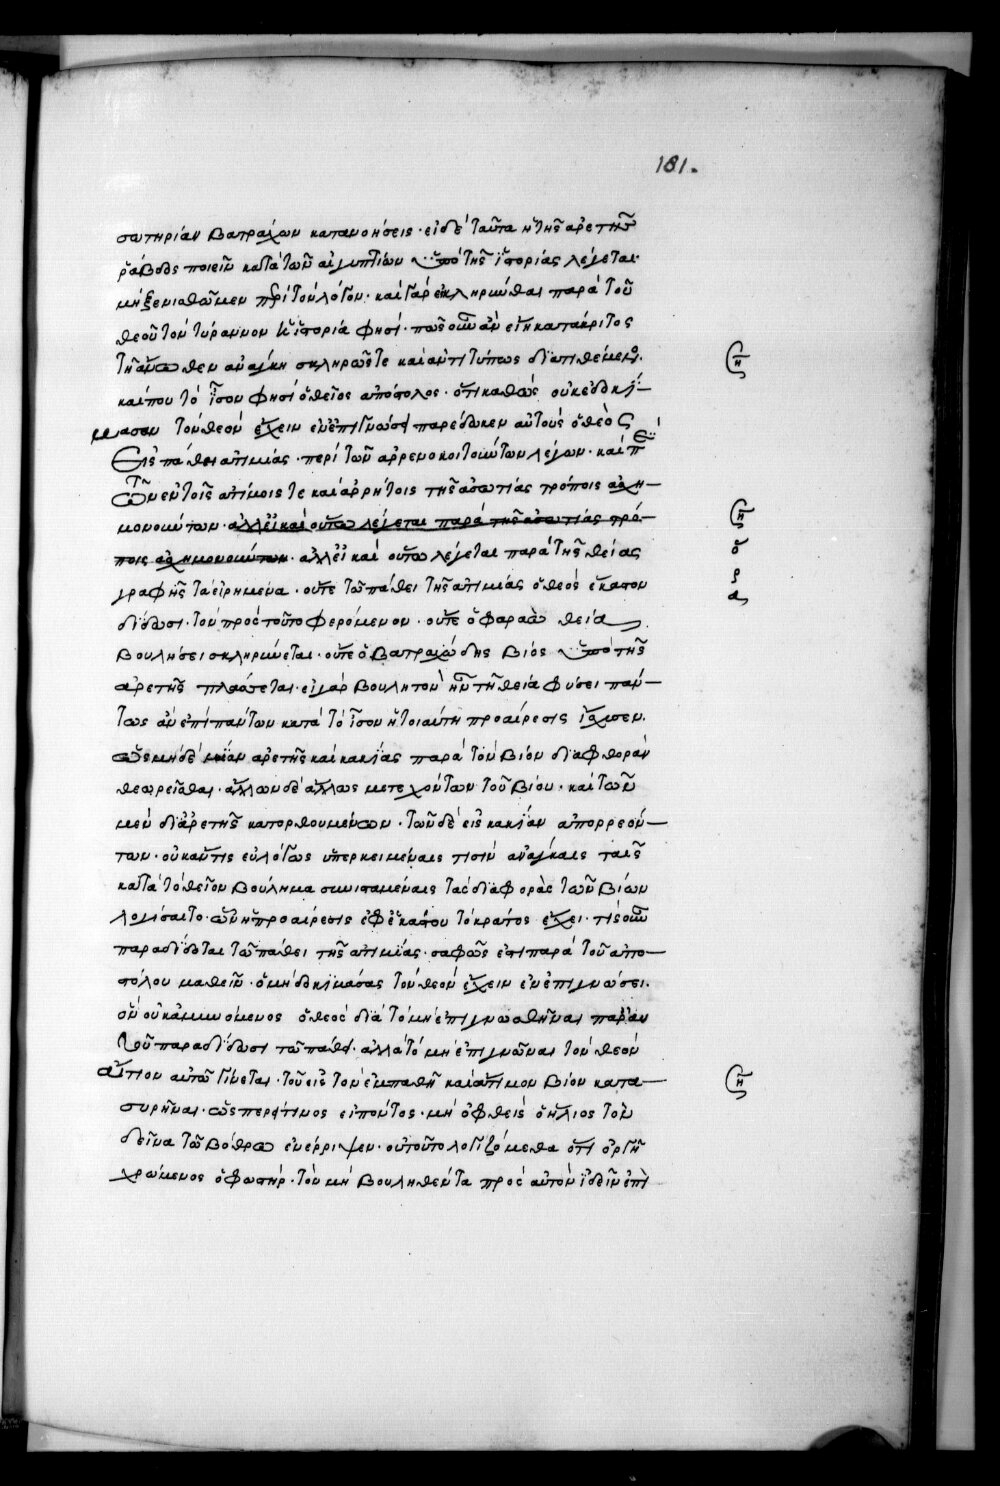 181.
σωτηρίαν βατράχων κατανοήσεις · εἰ δὲ ταῦτα ἡ τῆς ἀρετῆς
ῥάβδος ποιεῖν κατὰ τῶν αἰγυπτίων ὑπὸ τῆς ἱστορίας λέγεται·
μὴ ξενισθῶμεν πρὸς τὸν λόγον · καὶ γὰρ ἐσκληρύνθαι παρὰ τοῦ
θεοῦ τὸν τύραννον ἡ ἱστορία φησί · πῶς οὖν ἂν εἴη κατάκριτος
τῇ ἄνωθεν ἀνάγκῃ σκληρῶς τε καὶ ἀντιτύπως διατιθέμενος.
καί που τὸ ἶσον φησὶ ὁ θεῖος ἀπόστολος · ὅτι καθὼς οὐκ ἐδοκί-
μασαν τὸν θεὸν ἔχειν ἐν ἐπιγνώσει παρέδωκεν αὐτοὺς ὁ θεὸς
εἰς πάθη ἀτιμίας · περὶ τῶν ἀρρενοκοιτούντων λέγων · καὶ περὶ
τῶν ἐν τοῖς ἀτίμοις τε καὶ ἀρρήτοις τῆς ἀσωτίας τρόποις ἀσχη-
μονούντων · ἀλλ' εἰ καὶ οὕτω λέγεται παρὰ τῆς ἀσωτίας τρό-
ποις ἀσχημονούντων · ἀλλ' εἰ καὶ οὕτω λέγεται παρὰ τῆς θείας
γραφῆς τὰ εἰρημένα · οὔτε τῷ πάθει τῆς ἀτιμίας ὁ θεὸς ἔκδοτον
δίδωσι · τὸν πρὸς τοῦτο φερόμενον · οὔτε ὁ φαραὼ θεία
βουλήσει σκληρύνεται · οὔτε ὁ βατραχώδης βίος ὑπὸ τῆς
ἀρετῆς πλάσσεται · εἰ γὰρ βουλητὸν ἦν τῇ θεία φύσει πάν-
τως ἂν ἐπὶ πάντων κατὰ τὸ ἶσον ἡ τοιαύτη προαίρεσις ἴσχυσεν.
ὡς μηδὲ μίαν ἀρετῆς καὶ κακίας παρὰ τὸν βίον διαφορὰν
θεωρεῖσθαι · ἄλλων δὲ ἄλλως μετεχόντων τοῦ βίου · καὶ τῶν
μὲν δι' ἀρετῆς κατορθουμένων · τῶν δὲ εἰς κακίαν ἀπορρεόν-
των · οὐκ ἄν τις εὐλόγως ὑπερκειμέναις τισὶν ἀνάγκαις ταῖς
κατὰ τὸ θεῖον βούλημα συνισταμέναις τὰς διαφορὰς τῶν βίων
λογίσαιτο · ὧν ἡ προαίρεσις ἐφ' ἑκάστου τὸ κράτος ἔχει · τίς οὖν
παραδίδοται τῷ πάθει τῆς ἀτιμίας · σαφῶς ἔστι παρὰ τοῦ ἀπο-
στόλου μαθεῖν · ὁ μὴ δοκιμάσας τὸν θεὸν ἔχειν ἐν ἐπιγνώσει.
ὃν οὐκ ἀμυνόμενος ὁ θεὸς διὰ τὸ μὴ ἐπιγνωσθῆναι παρ' αὐ
τοῦ παραδίδωσι τῷ πάθει · ἀλλὰ τὸ μὴ ἐπιγνῶναι τὸν θεὸν
αἴτιον αὐτῷ γίνεται · τοῦ εἰς τὸν ἐμπαθῆ καὶ ἄτιμον βίον κατα-
συρῆναι · ὥσπερ τινος εἰπόντος · μὴ ὀφθεὶς ὁ ἥλιος τὸν
δεῖνα τῷ βόθρῳ ἐνέρριψεν · οὐ τοῦτο λογιζόμεθα ὅτι ὀργῇ
χρώμενος ὁ φωστὴρ · τὸν μὴ βουληθέντα πρὸς αὐτὸν ἰδεῖν ἐπὶ